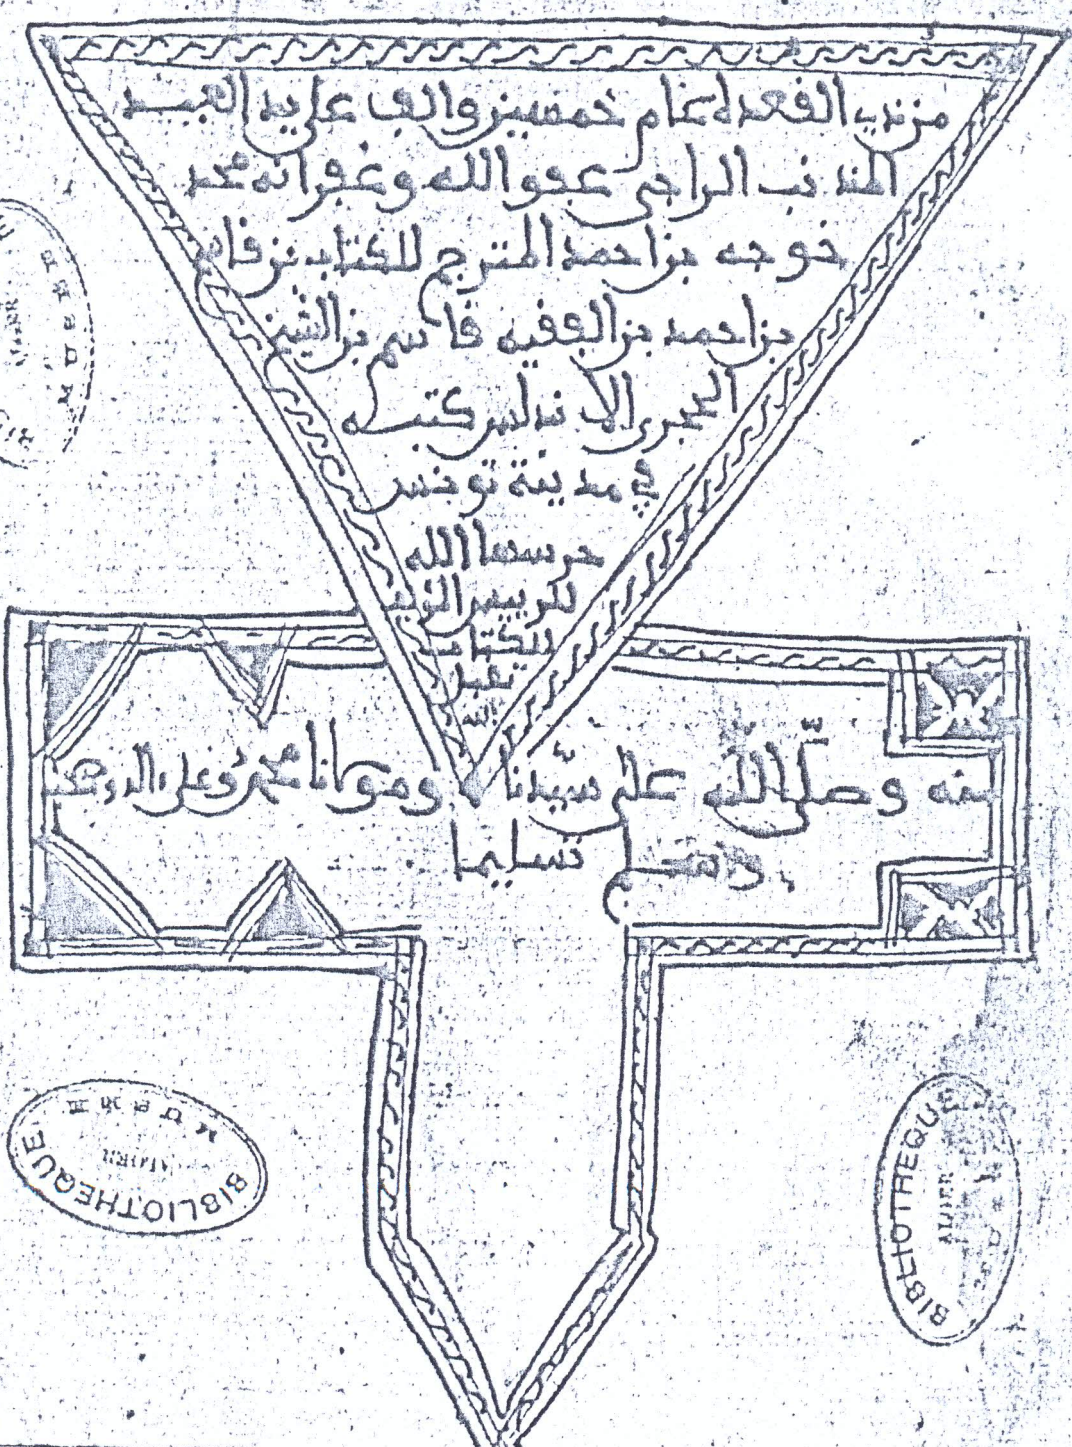 من ذي القعدة عام خمسين وألف على يد العبد
المذنب الراجي عفو الله وغفرانه محمد
خوجه بن احمد المترجم للكتاب بن قاسم
بن احمد بن الفقيه قاسم بن الشيخ
الحجري الاندلسي كتبه
في مدينة تونس
حرسها الله
للرييس
للكتاب
الله
وصلّى اللّه على سيّدنا ومولانا محمد وعلى اله وصحبه
وسلم تسليما
BIBLIOTHEQUE
ALGER
BIBLIOTHEQUE
ALGER